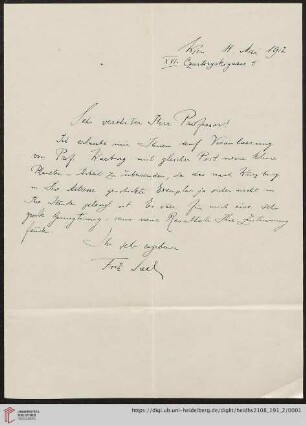 Wien 11. Mai 1912
XVI.
Sehr verehrter Herr Professor!
Ich erlaube mir Ihnen auf Veranlassung
von Prof. Warburg mit gleicher Post meine kleine
Planeten-Arbeit zu übersenden, da das nach Würzburg
an Ihre Adresse geschickte Exemplar ja leider nicht in
Ihre Hände gelangt ist. Es wäre für mich eine sehr
große Genugtuung, wenn meine Resultate Ihre Zustimmung
fände.
Ihr sehr ergebener
Fritz Saxl
https://digi.ub.uni-heidelberg.de/diglit/heidhs2108_191_2/0001